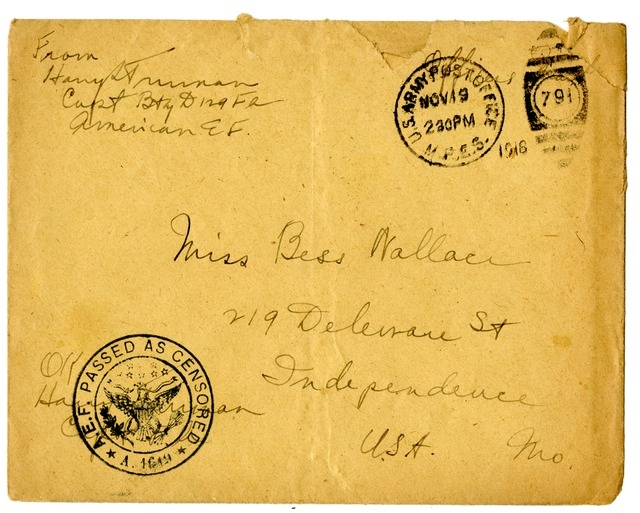 From
Harry S Truman
Capt Bty D 129 FA
American E.F.
Officers Mail
U.S. ARMY POST OFFICE
NOV 19
2 30 PM
M.P.E.S.
1918
791
Miss Bess Wallace
219 Deleware St
Independence
U.S.A. Mo.
A.E.F. PASSED AS CENSORED
A. 1649
OK
Harry Truman